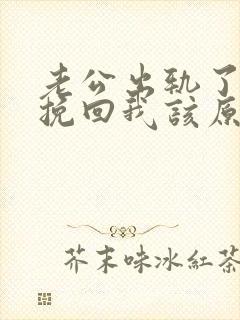 老公出轨了
挽回我該原
芥末味冰紅茶